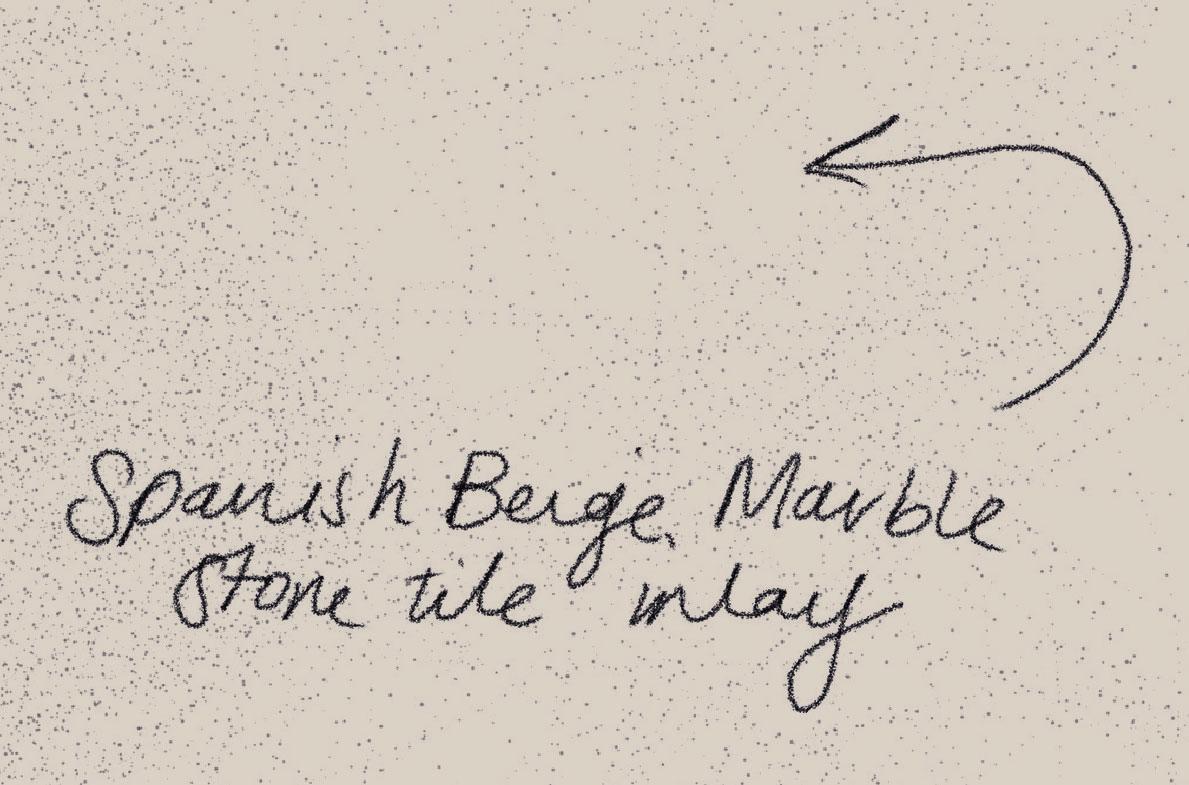 Spanish Beige Marble
Stone tile inlay